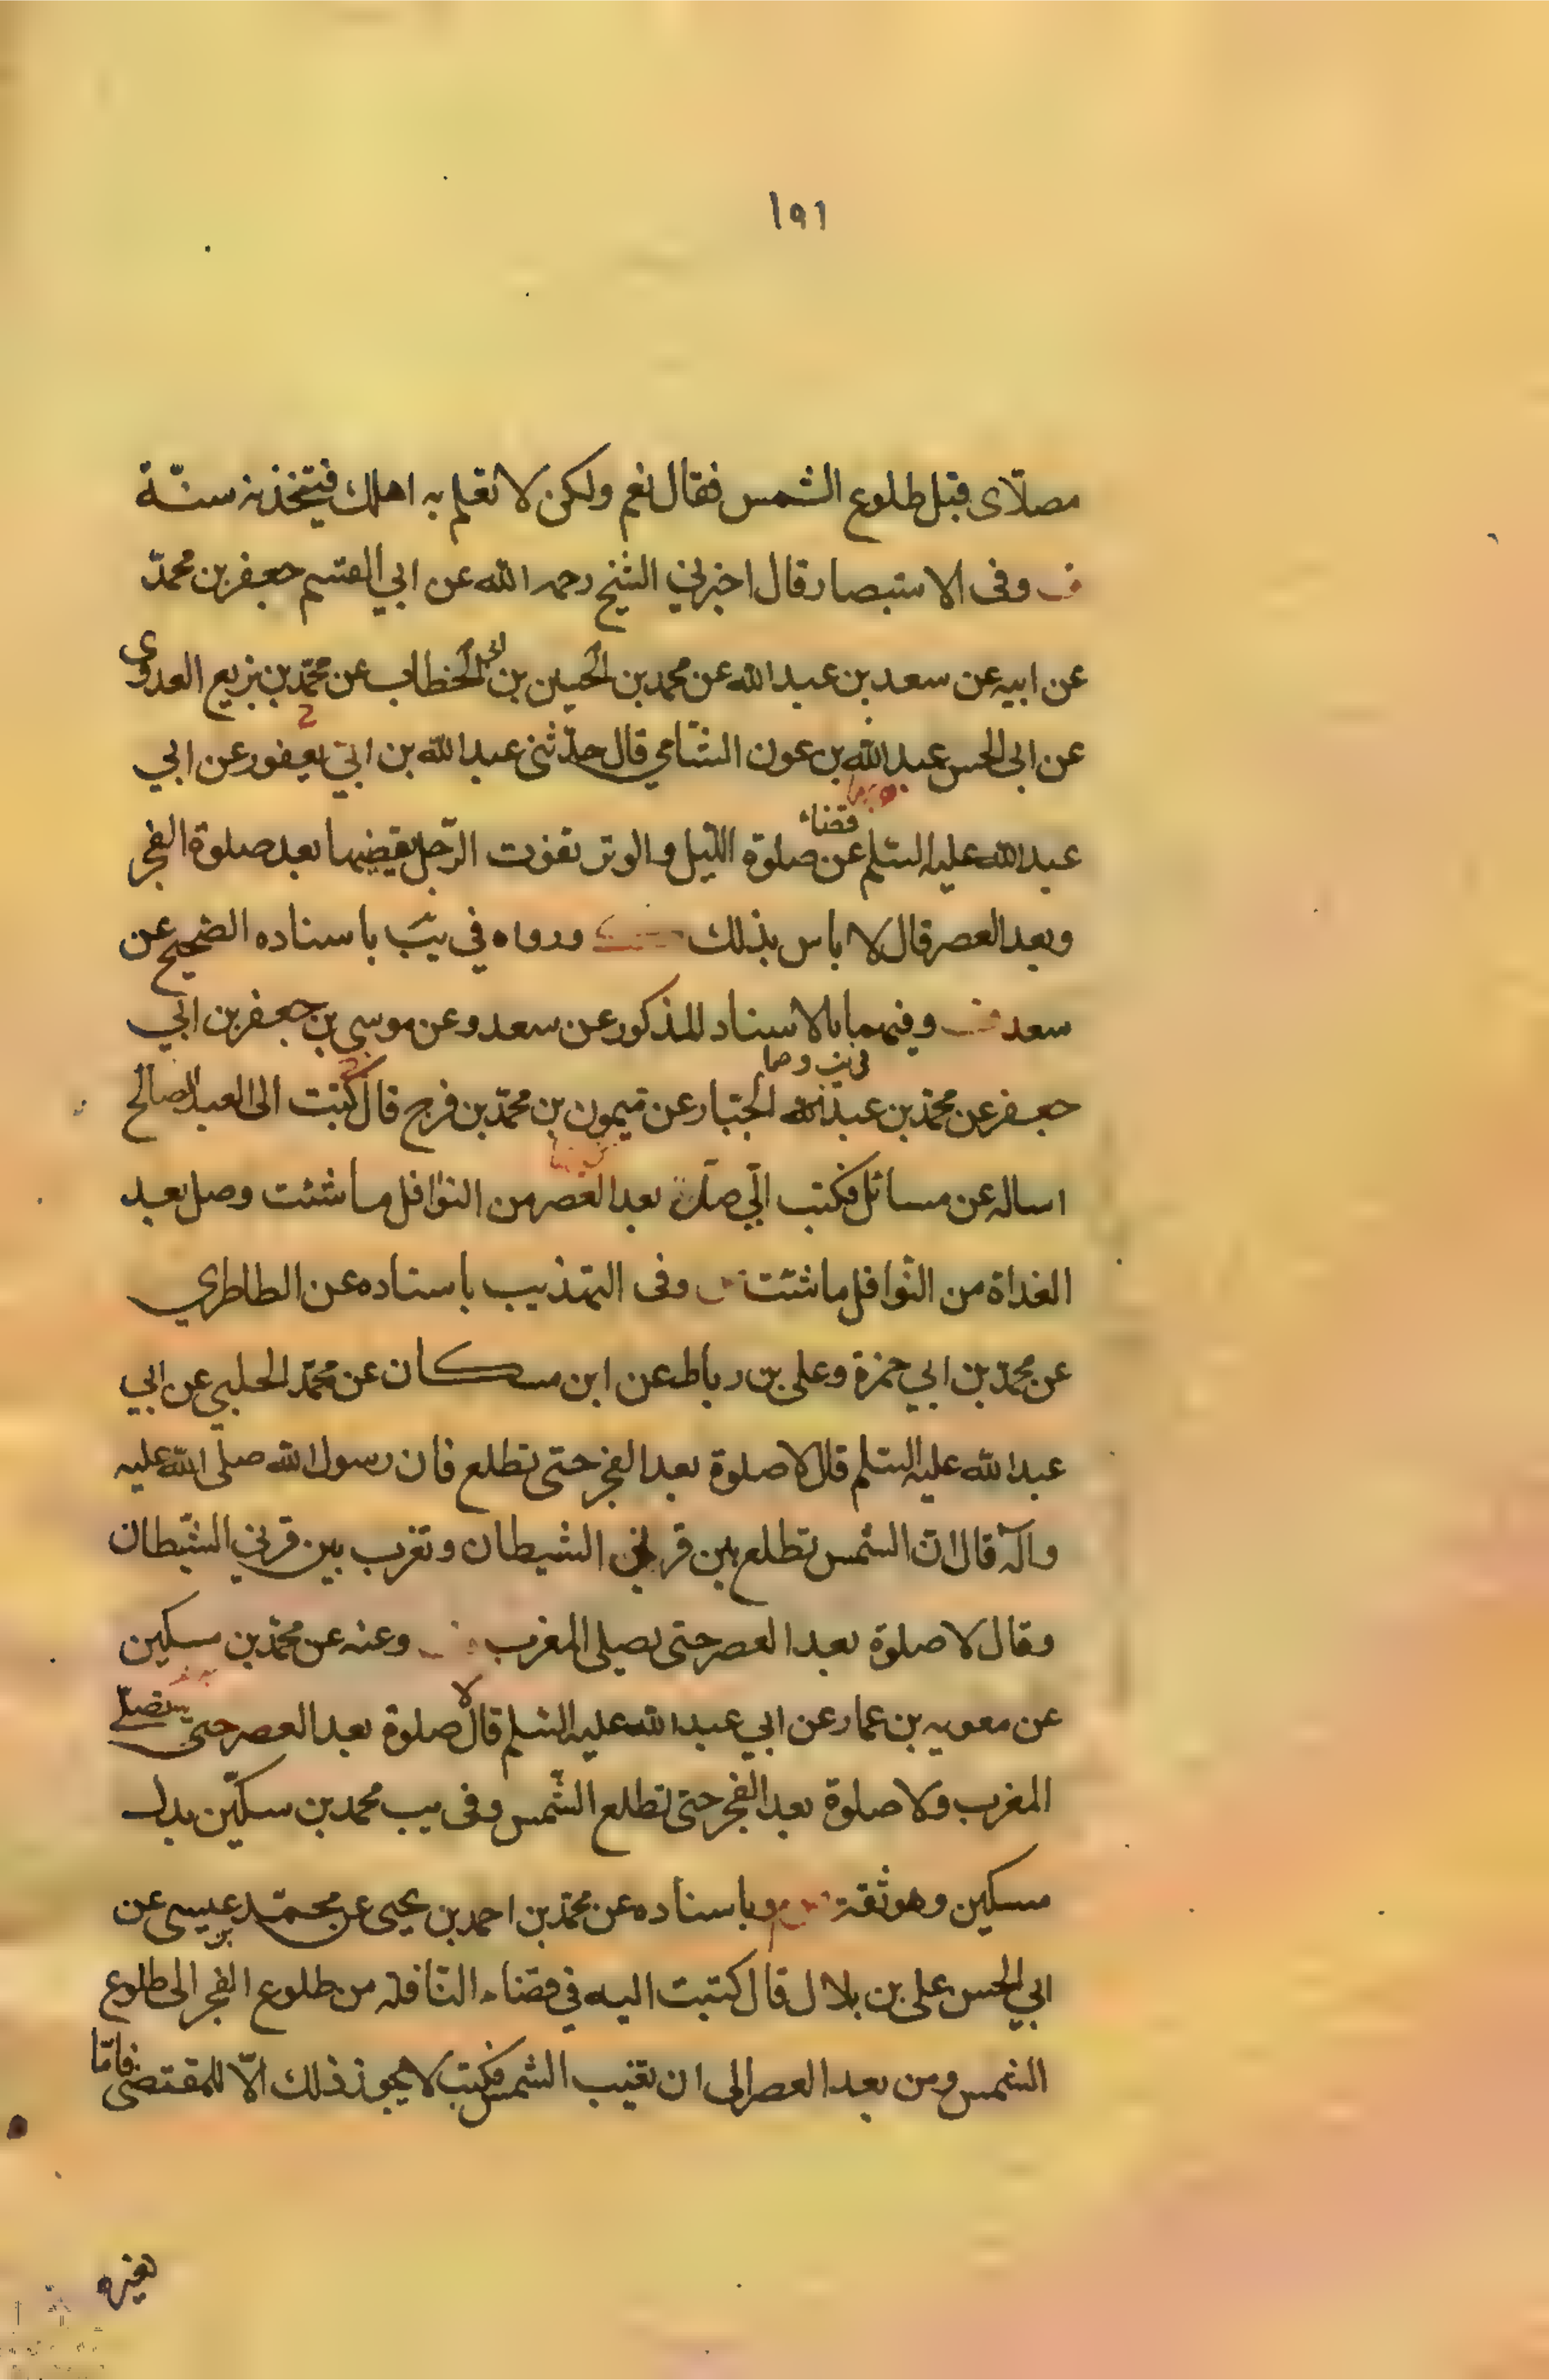 ١٩١
مصلّاى قبل طلوع الشمس فقال نعم ولكن لا تعلم به اهلك فيتخذنه سنّة
ف وفى الاستبصار قال اخبرني الشيخ رحمه الله عن ابي القسم جعفر بن محمّد
عن ابيه عن سعد بن عبد الله عن محمد بن الحسين بن الخطاب عن محمّد بن بزيع العدوى
عن ابى الحسن عبد الله بن عون الشامي قال حدّثنى عبد الله بن ابي يعفور عن ابي
عبد الله عليه السلم عن قضاء صلوة الليل والوتر تفوت الرّجل يقضيها بعد صلوة الفجر
وبعد العصر قال لا باس بذلك ورواه في يب باسناده الصحيح عن
سعد ف وفيهما بالاسناد المذكور عن سعد وعن موسى بن جعفر بن ابي
جعفر عن محمّد بن عبد الجبّار عن ميمون بن محمّد بن فرج قال كتبت الى العبد الصالح
اساله عن مسائل فكتب الّي صلّ بعد العصر من النوافل ما شئت وصل بعد
الغداة من النّوافل ما شئت وفى التهذيب باسناده عن الطاطري
عن محمّد بن ابي حمزة وعلى بن رباط عن ابن مسكان عن محمّد الحلبي عن ابي
عبد الله عليه السلم قال لا صلوة بعد الفجر حتى تطلع فان رسول الله صلّى الله عليه
وآله قال انّ الشمس تطلع بين قرني الشيطان وتغرب بين قرني الشّيطان
وقال لا صلوة بعد العصر حتى يصلى المغرب وعنه عن محمّد بن مسكين
عن معويه بن عمار عن ابي عبد الله عليه السلم قال لا صلوة بعد العصر حتى تصلّى
المغرب ولا صلوة بعد الفجر حتى تطلع الشّمس وفى يب محمد بن سكّين بدل
مسكين وهو ثقة وباسناده عن محمّد بن احمد بن يحيى عن محمّد بن عيسى عن
ابي الحسن على بن بلال قال كتبت اليه في قضاء النّافلة من طلوع الفجر الى طلوع
الشمس ومن بعد العصر الى ان تغيب الشمس فكتب لا يجوز ذلك الّا للمقتضى فامّا
لغيره